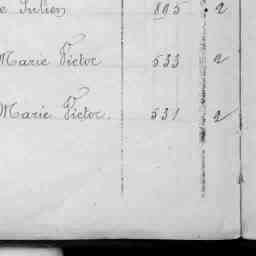 e Julien 805 2
Marie Victor 533 2
Marie Victor. 531 2